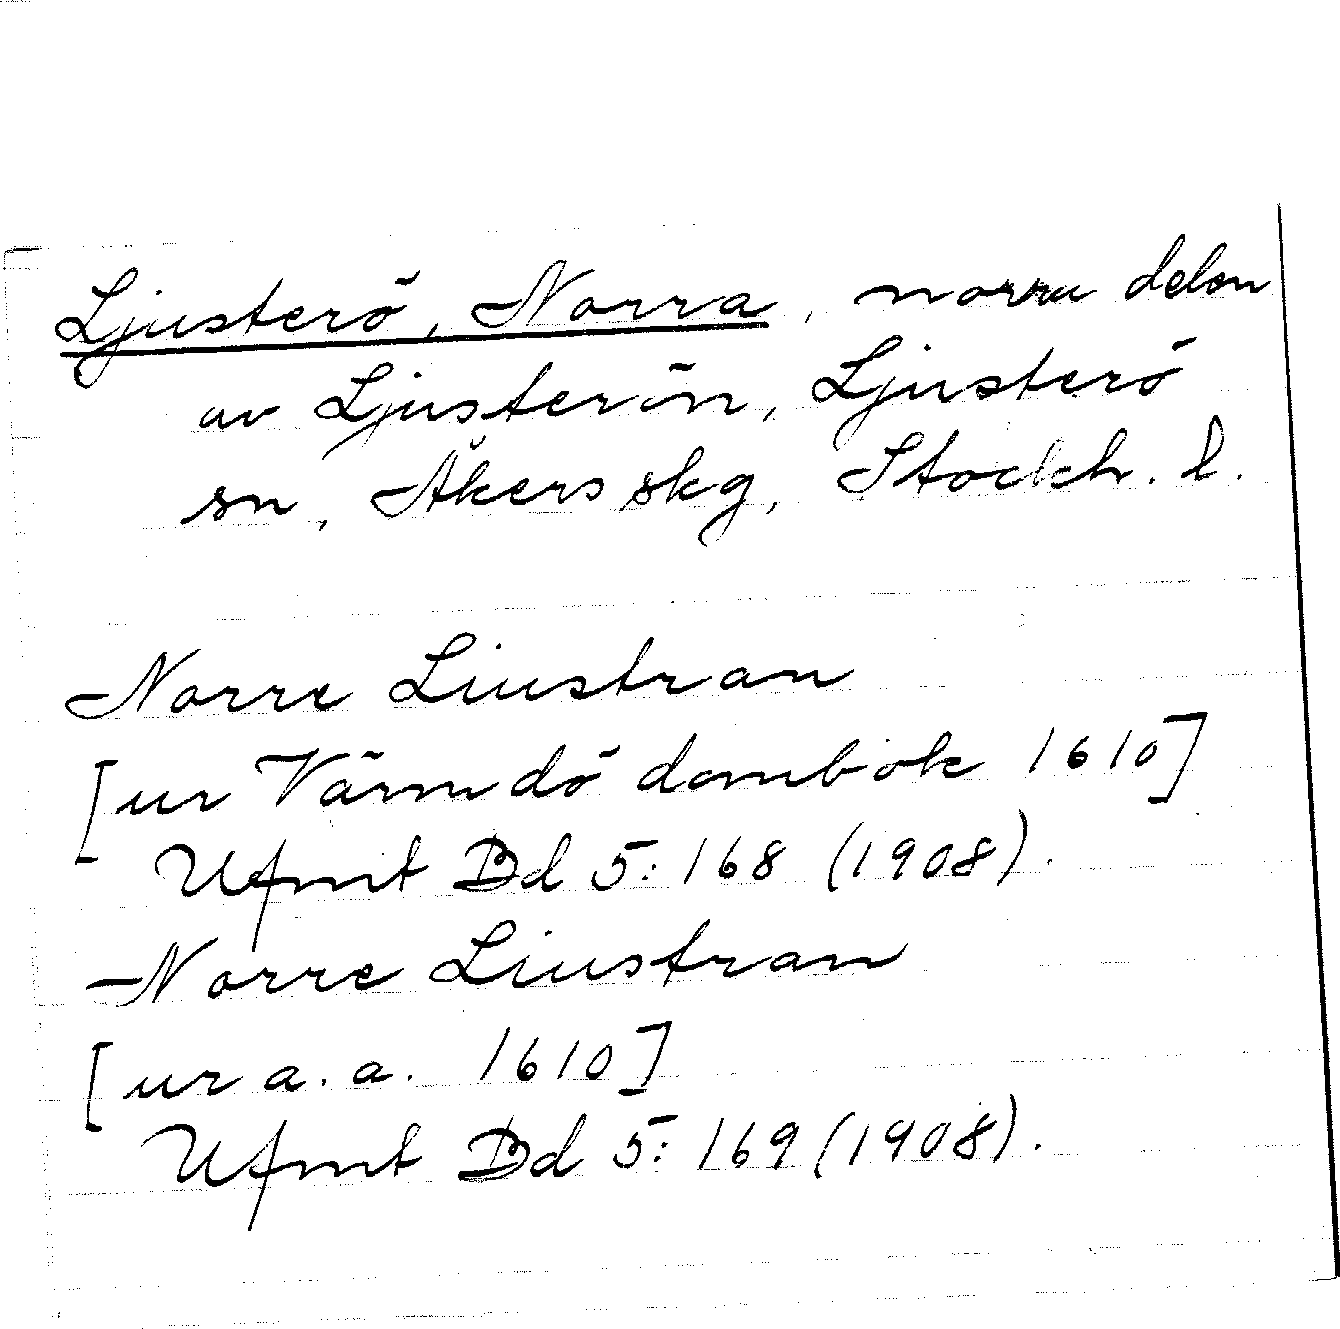 Ljusterö, Norra, norra delen
av Ljusterön, Ljusterö
sn, Åkers skg, Stockh. l.
Norre Liustran
[ur Värmdö dombok 1610]
Ufmt Bd 5: 168 (1908).
Norre Liustran
[ur a. a. 1610]
Ufmt Bd 5: 169 (1908).